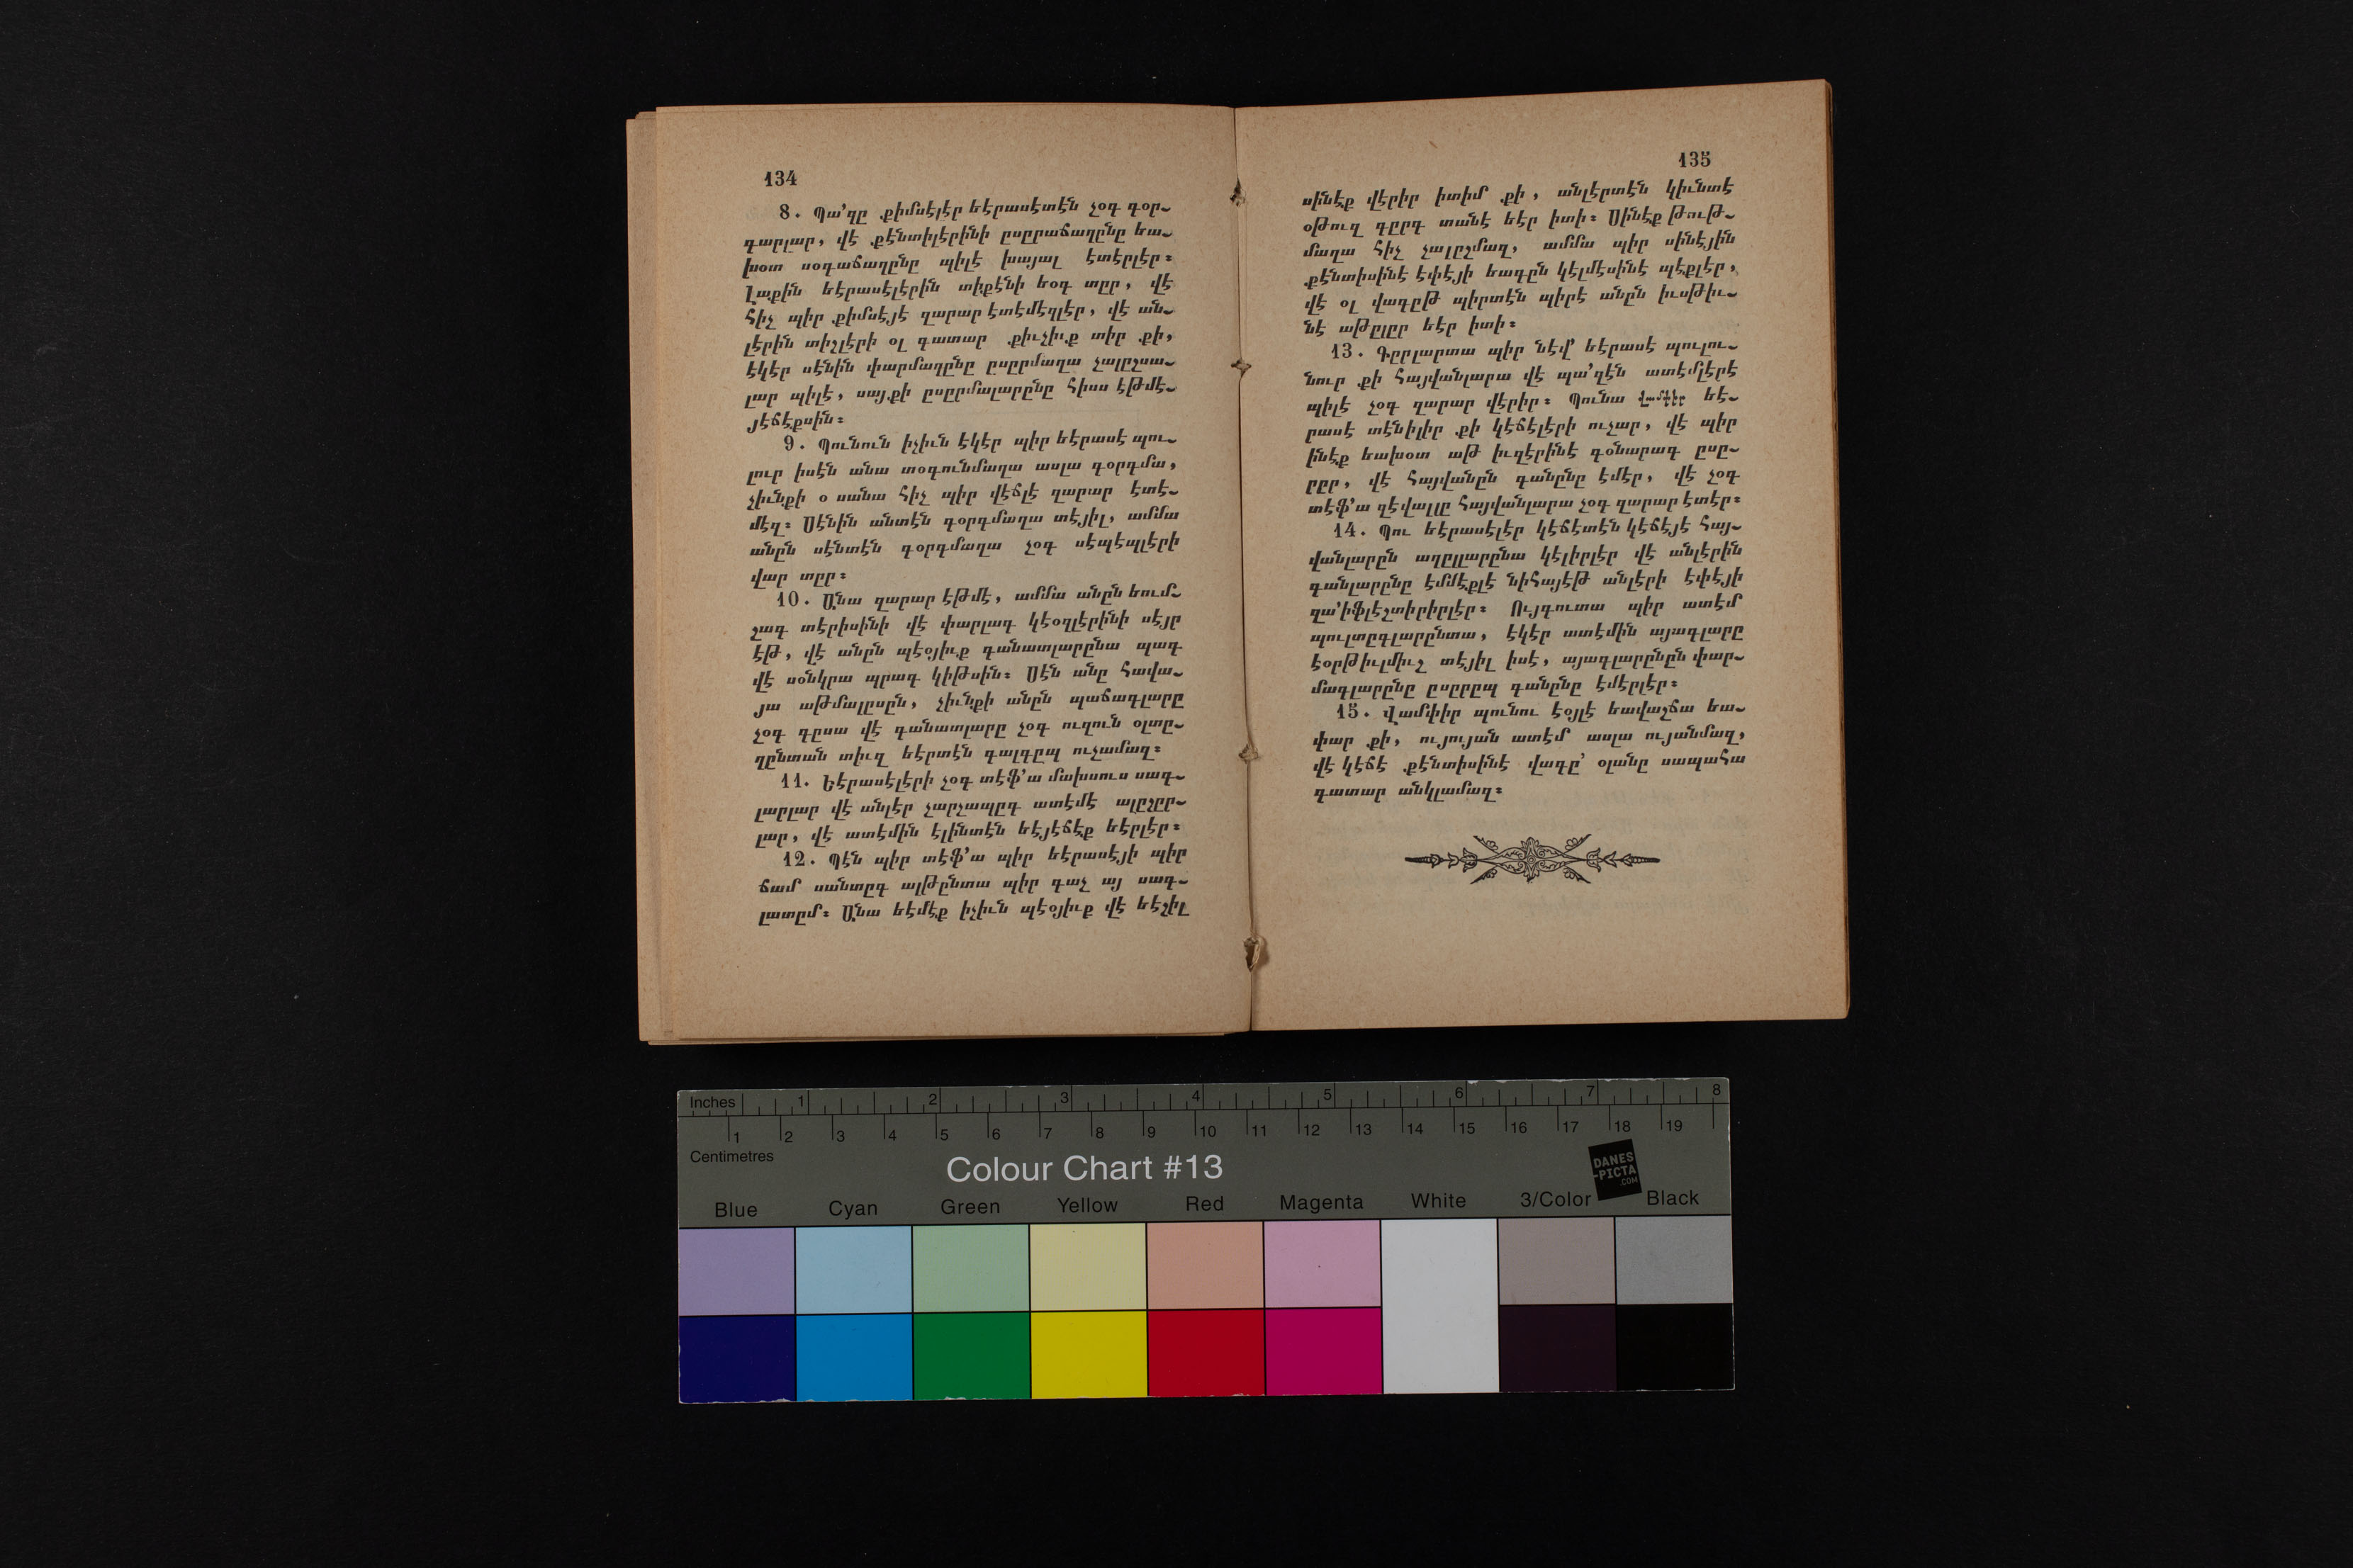 134
8. Պա՛զը քիմսէլէր եէրասէտէն չօգ գօր֊
գարլար, վէ քէնտիլէրինի ըսըրաճաղընը եա֊
խօտ սօգաճաղընը պիլէ խայալ էտէրլէր։
Լաքին եէրասէլէրին տիքէնի եօգ տըր, վէ
հիչ պիր քիմսէյէ զարար էտէմէզլէր, վէ ան֊
լէրին տիշլէրի օլ գատար քիւչիւք տիր քի,
էկէր սէնին փարմաղընը ըսըրմաղա չալըշսա֊
լար պիլէ, սայքի ըսըրմալարընը հիսս էթմէ֊
յէճէքսին։
9. Պունուն իչիւն էկէր պիր եէրասէ պու֊
լուր իսէն անա տօգունմաղա ասլա գօրգմա,
չիւնքի օ սանա հիչ պիր վէճլէ զարար էտէ֊
մէզ։ Սէնին անտէն գօրգմաղա տէյիլ, ամմա
անըն սէնտէն գօրգմաղա չօգ սէպէպլէրի
վար տըր։
10. Անա զարար էթմէ, ամմա անըն եում֊
շագ տէրիսինի վէ փարլագ կէօզլէրինի սէյր
էթ, վէ անըն պէօյիւք գանատլարընա պագ
վէ սօնկրա պրագ կիթսին։ Սէն անը հավա֊
յա աթմալըսըն, չիւնքի անըն պաճագլարը
չօգ գըսա վէ գանատլարը չօգ ուզուն օլտը֊
ղընտան տիւզ եէրտէն գալգըպ ուչամազ։
11. Եէրասէլէրի չօգ տէֆ՛ա մախսուս սագ֊
լարլար վէ անլէր չարչապըգ ատէմէ ալըշըր֊
լար, վէ ատէմին էլինտէն եէյէճէք եէրլէր։
12. Պէն պիր տէֆ՛ա պիր եէրասէյի պիր
ճամ սանտըգ ալթընտա պիր գաչ այ սագ֊
լատըմ։ Անա եէմէք իչիւն պէօյիւք վէ եէշիլ
135
սինէք վէրիր իտիմ քի, անլէրտէն կիւնտէ
օթուզ գըրգ տանէ եէր իտի։ Սինէք թութ֊
մաղա հիչ չալըշմազ, ամմա պիր սինէյին
քէնտիսինէ էփէյի եագըն կէլմէսինէ պէքլէր,
վէ օլ վագըթ պիրտէն պիրէ անըն իւսթիւ֊
նէ աթըլըր եէր իտի։
13. Գըրլարտա պիր նէվ՛ եէրասէ պուլու֊
նուր քի հայվանլարա վէ պա՛զէն ատէմլէրէ
պիլէ չօգ զարար վէրիր։ Պունա վամփիր եէ֊
րասէ տէնիլիր քի կէճէլէրի ուչար, վէ պիր
ինէք եախօտ աթ իւզէրինէ գօնարագ ըսը֊
րըր, վէ հայվանըն գանընը էմէր, վէ չօգ
տէֆ՛ա զէվալլը հայվանլարա չօգ զարար էտէր։
14. Պու եէրասէլէր կէճէտէն կէճէյէ հայ֊
վանլարըն աղըլլարընա կէլիրլէր վէ անլէրին
գանլարընը էմմէքլէ նիհայէթ անլէրի էփէյի
զա՛իֆլէշտիրիրլէր։ Ույգուտա պիր ատէմ
պուլտըգլարընտա, էկէր ատէմին այագլարը
էօրթիւլմիւշ տէյիլ իսէ, այագլարընըն փար֊
մագլարընը ըսըրըպ գանընը էմէրլէր։
15. Վամփիր պունու էօյլէ եավաշճա եա֊
փար քի, ույույան ատէմ ասլա ույանմազ,
վէ կէճէ քէնտիսինէ վագը՛ օլանը սապահա
գատար անկլամազ։
Inches 1 2 3 4 5 6 7 8
1 2 3 4 5 6 7 8 9 10 11 12 13 14 15 16 17 18 19
Centimetres
Colour Chart #13
DANES
-PICTA
.COM
Blue Cyan Green Yellow Red Magenta White 3/Color Black